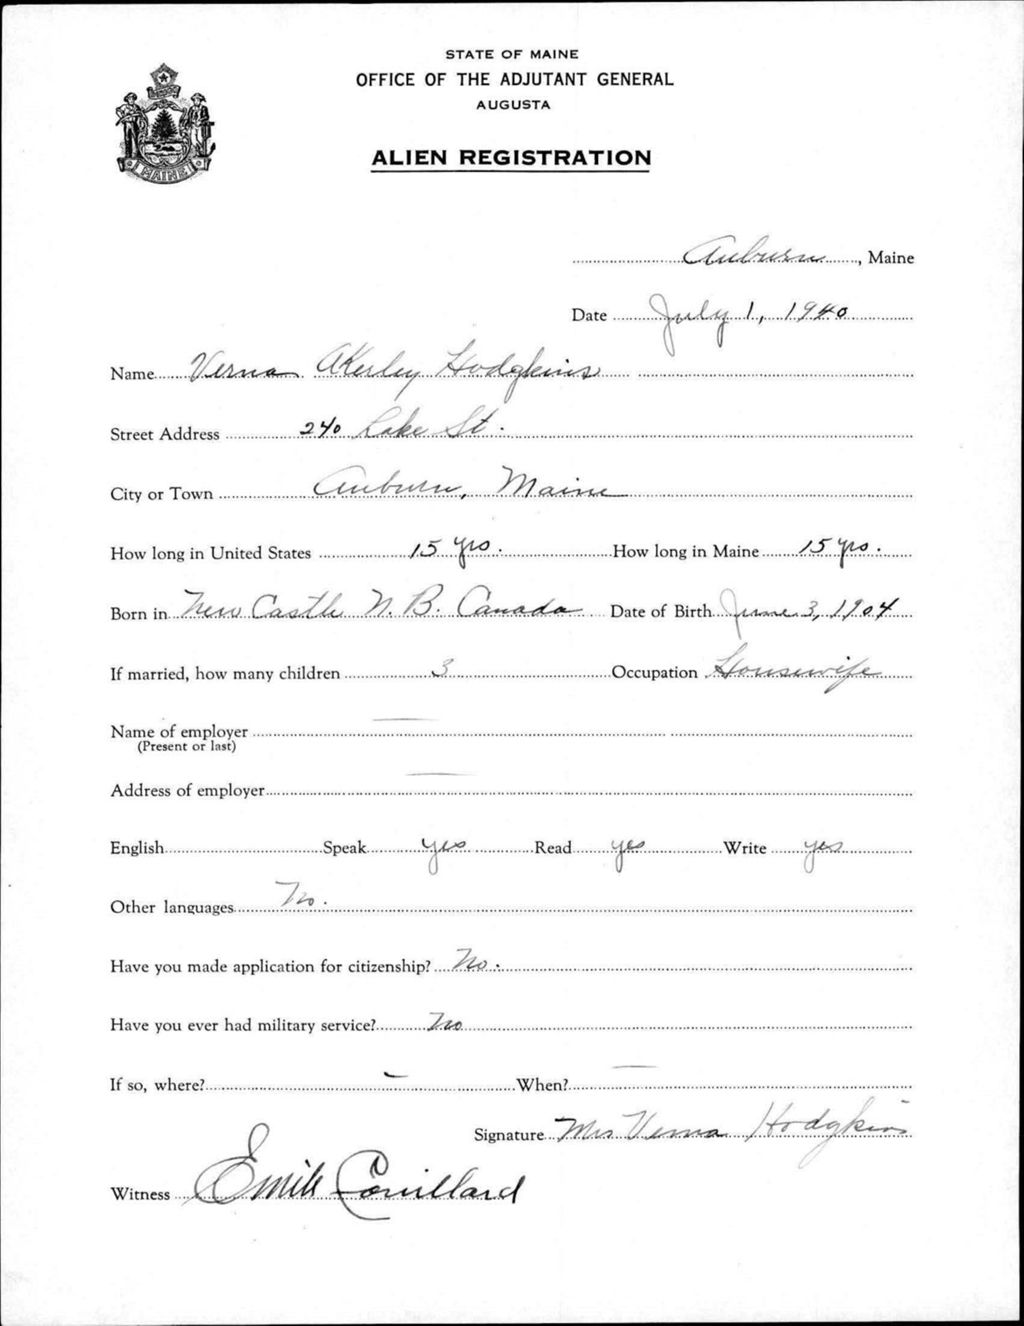 STATE OF MAINE
OFFICE OF THE ADJUTANT GENERAL
AUGUSTA
ALIEN REGISTRATION
MAINE
Auburn, Maine
Date July 1, 1940
Name Verna Akerley Hodgkins
Street Address 240 Lake St.
City or Town Auburn, Maine
How long in United States 15 yrs. How long in Maine 15 yrs.
Born in New Castle N.B. Canada Date of Birth June 3, 1904
If married, how many children 3 Occupation Housewife
Name of employer —
(Present or last)
Address of employer —
English Speak yes Read yes Write yes
Other languages No.
Have you made application for citizenship? No.
Have you ever had military service? No
If so, where? — When? —
Signature Mrs Verna Hodgkins
Witness Emile Couillard